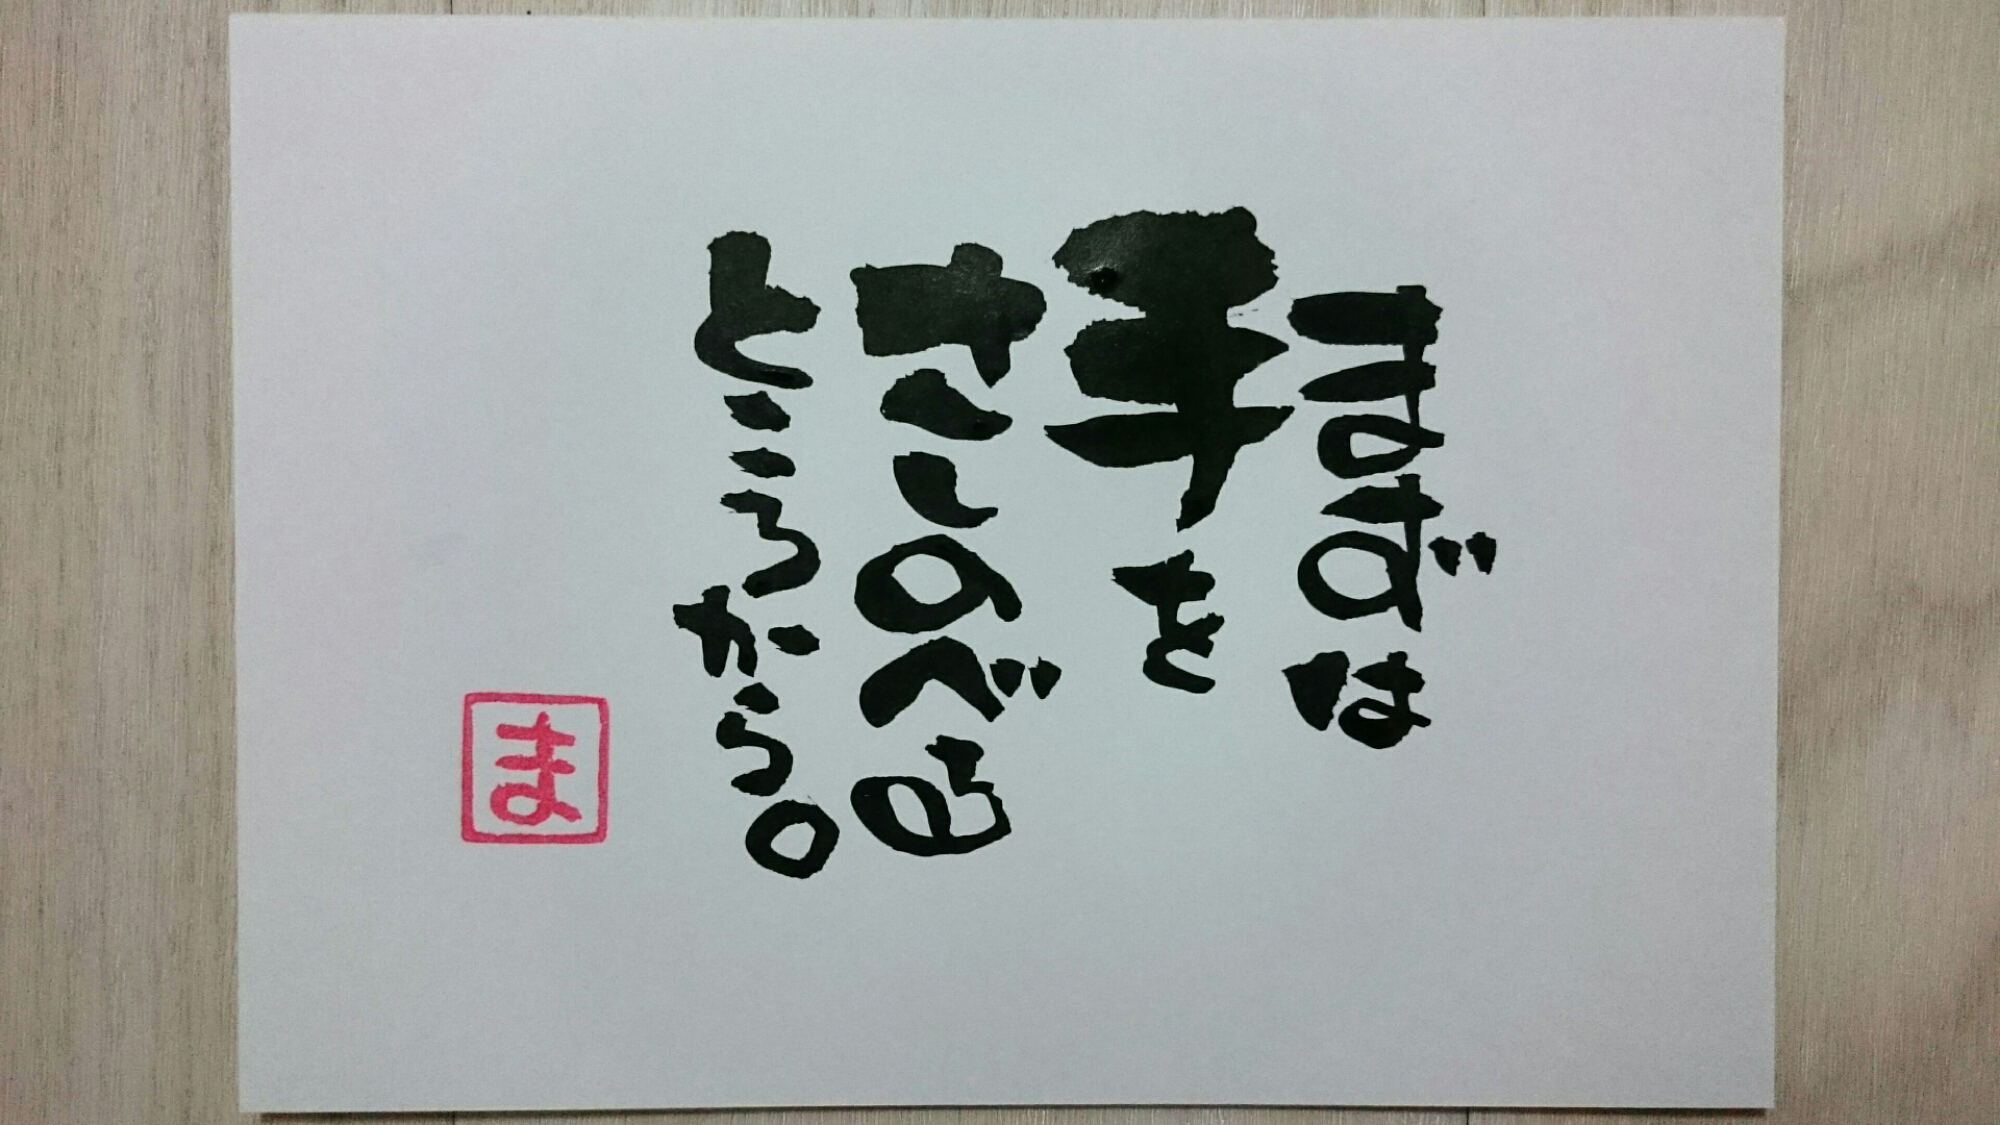 まずは
手を
さしのべる
ところから。
ま